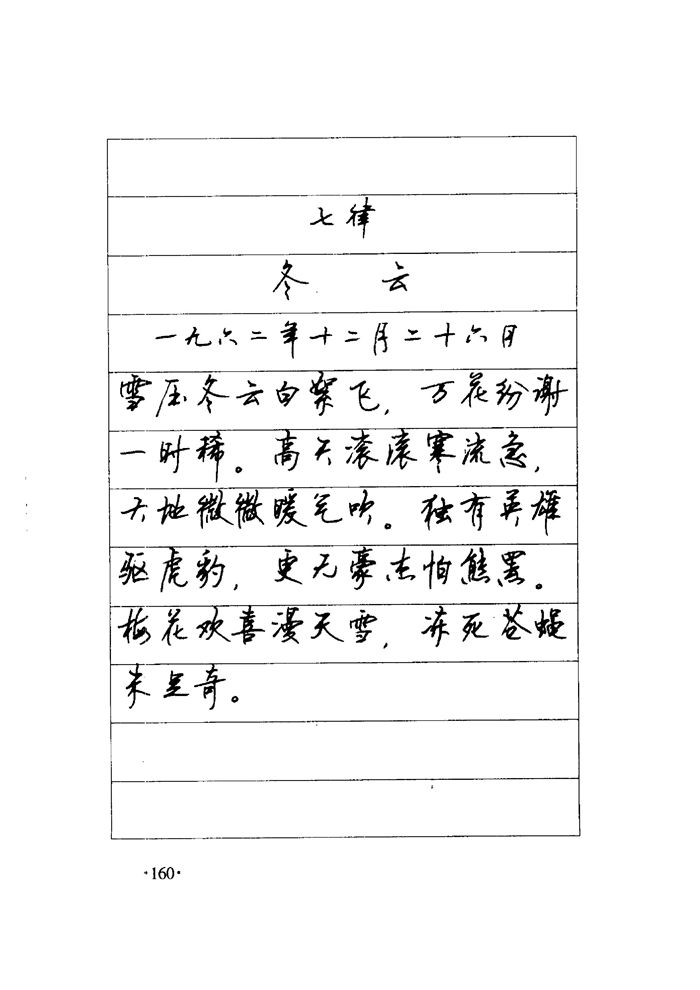 七律
冬 云
一九六二年十二月二十六日
雪压冬云白絮飞，万花纷谢
一时稀。高天滚滚寒流急，
大地微微暖气吹。独有英雄
驱虎豹，更无豪杰怕熊罴。
梅花欢喜漫天雪，冻死苍蝇
未足奇。
·160·